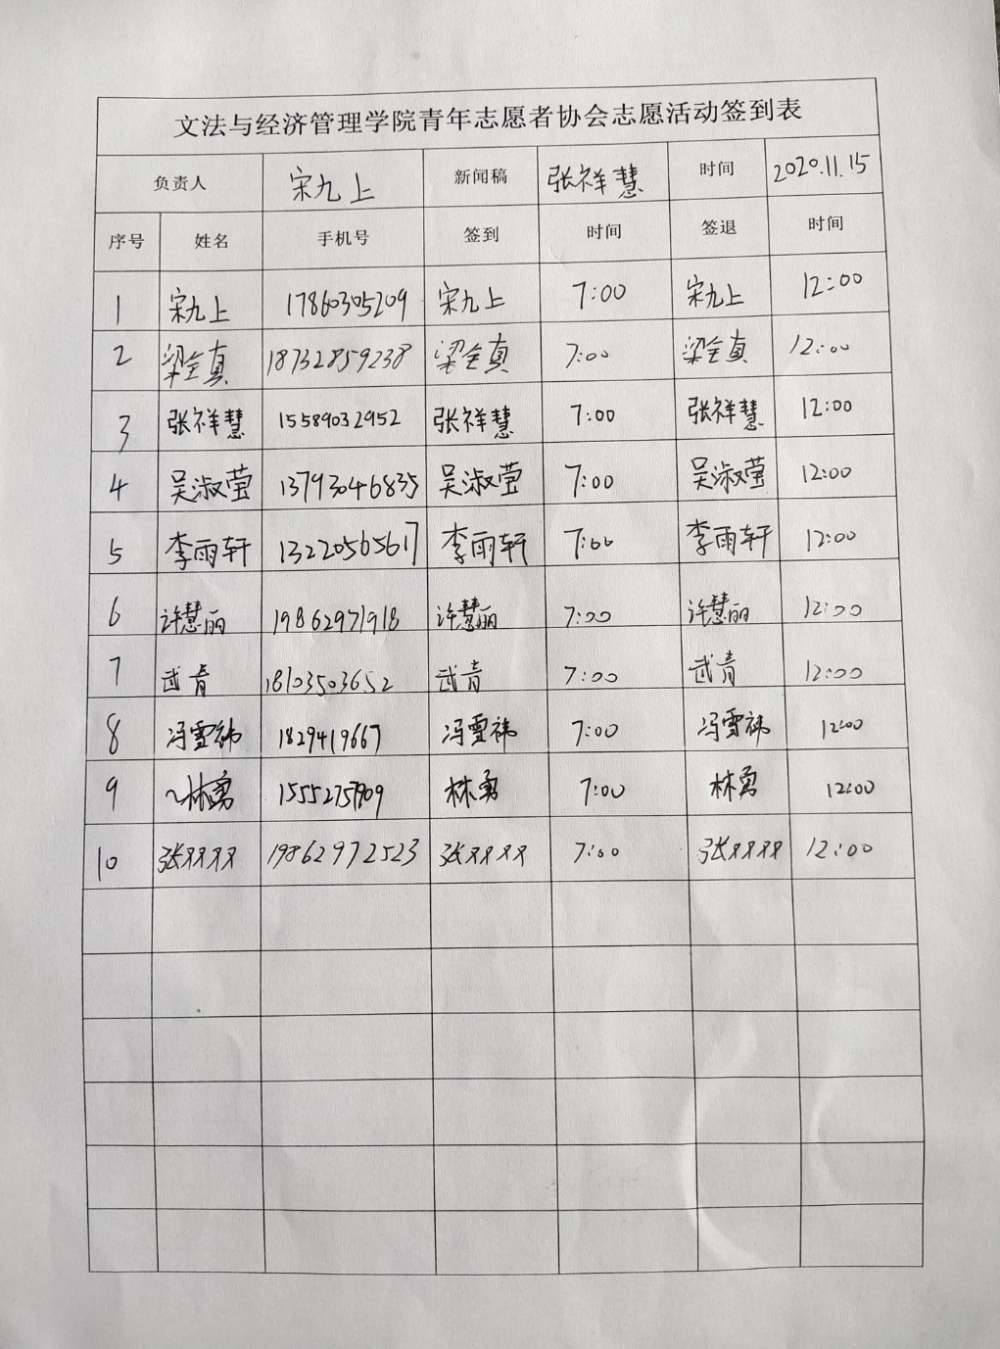 文法与经济管理学院青年志愿者协会志愿活动签到表
负责人 宋九上 新闻稿 张祥慧 时间 2020.11.15
序号 姓名 手机号 签到 时间 签退 时间
1 宋九上 17860305209 宋九上 7:00 宋九上 12:00
2 梁全真 18732859238 梁全真 7:00 梁全真 12:00
3 张祥慧 15589032952 张祥慧 7:00 张祥慧 12:00
4 吴淑莹 13793046835 吴淑莹 7:00 吴淑莹 12:00
5 李雨轩 13220565617 李雨轩 7:00 李雨轩 12:00
6 许慧丽 19862971918 许慧丽 7:00 许慧丽 12:00
7 武青 18103503652 武青 7:00 武青 12:00
8 冯雪祎 1829419667 冯雪祎 7:00 冯雪祎 12:00
9 林勇 林勇 7:00 林勇 12:00
10 张双双 19862972523 张双双 7:00 张双双 12:00